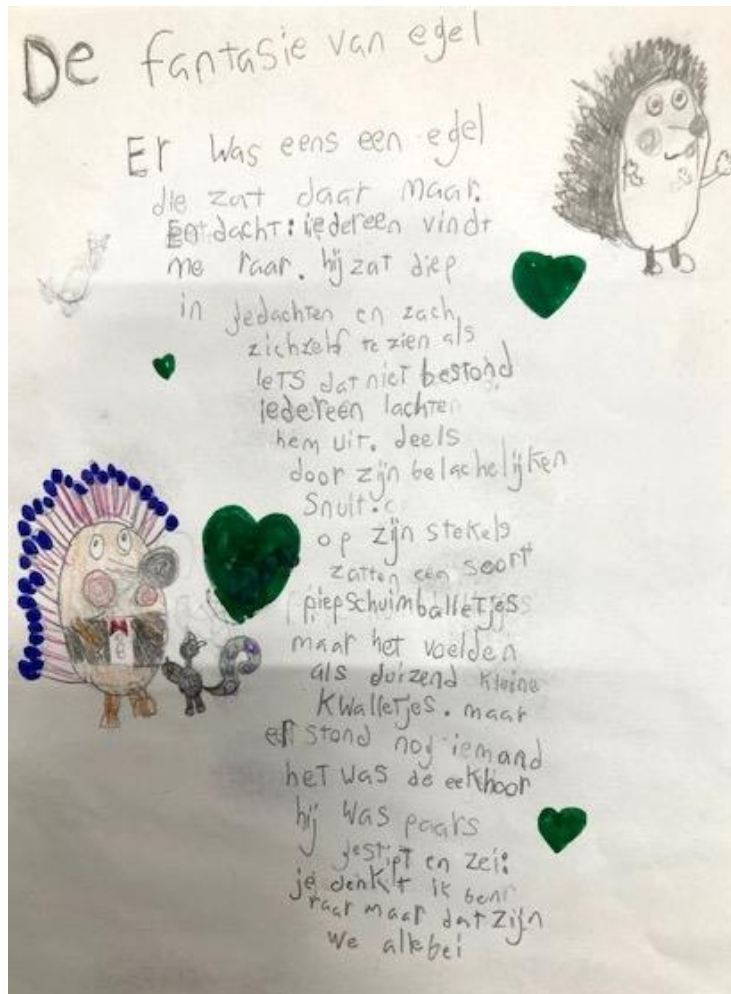 De fantasie van egel
Er Was eens een egel
die zat daar maar.
En dacht: iedereen vindt
me raar. hij zat diep
in gedachten en zach
zichzelf te zien als
Iets dat niet bestond
iedereen lachten
hem uit. deels
door zijn belachelijken
Snuit.
op zijn stekels
zatten een soort
piepschuimballetjes
maar het voelden
als duizend kleine
kwalletjes. maar
er stond nog iemand
het was de eekhoor
hij was paars
gestipt en zei:
je denkt ik ben
raar maar dat zijn
we allebei